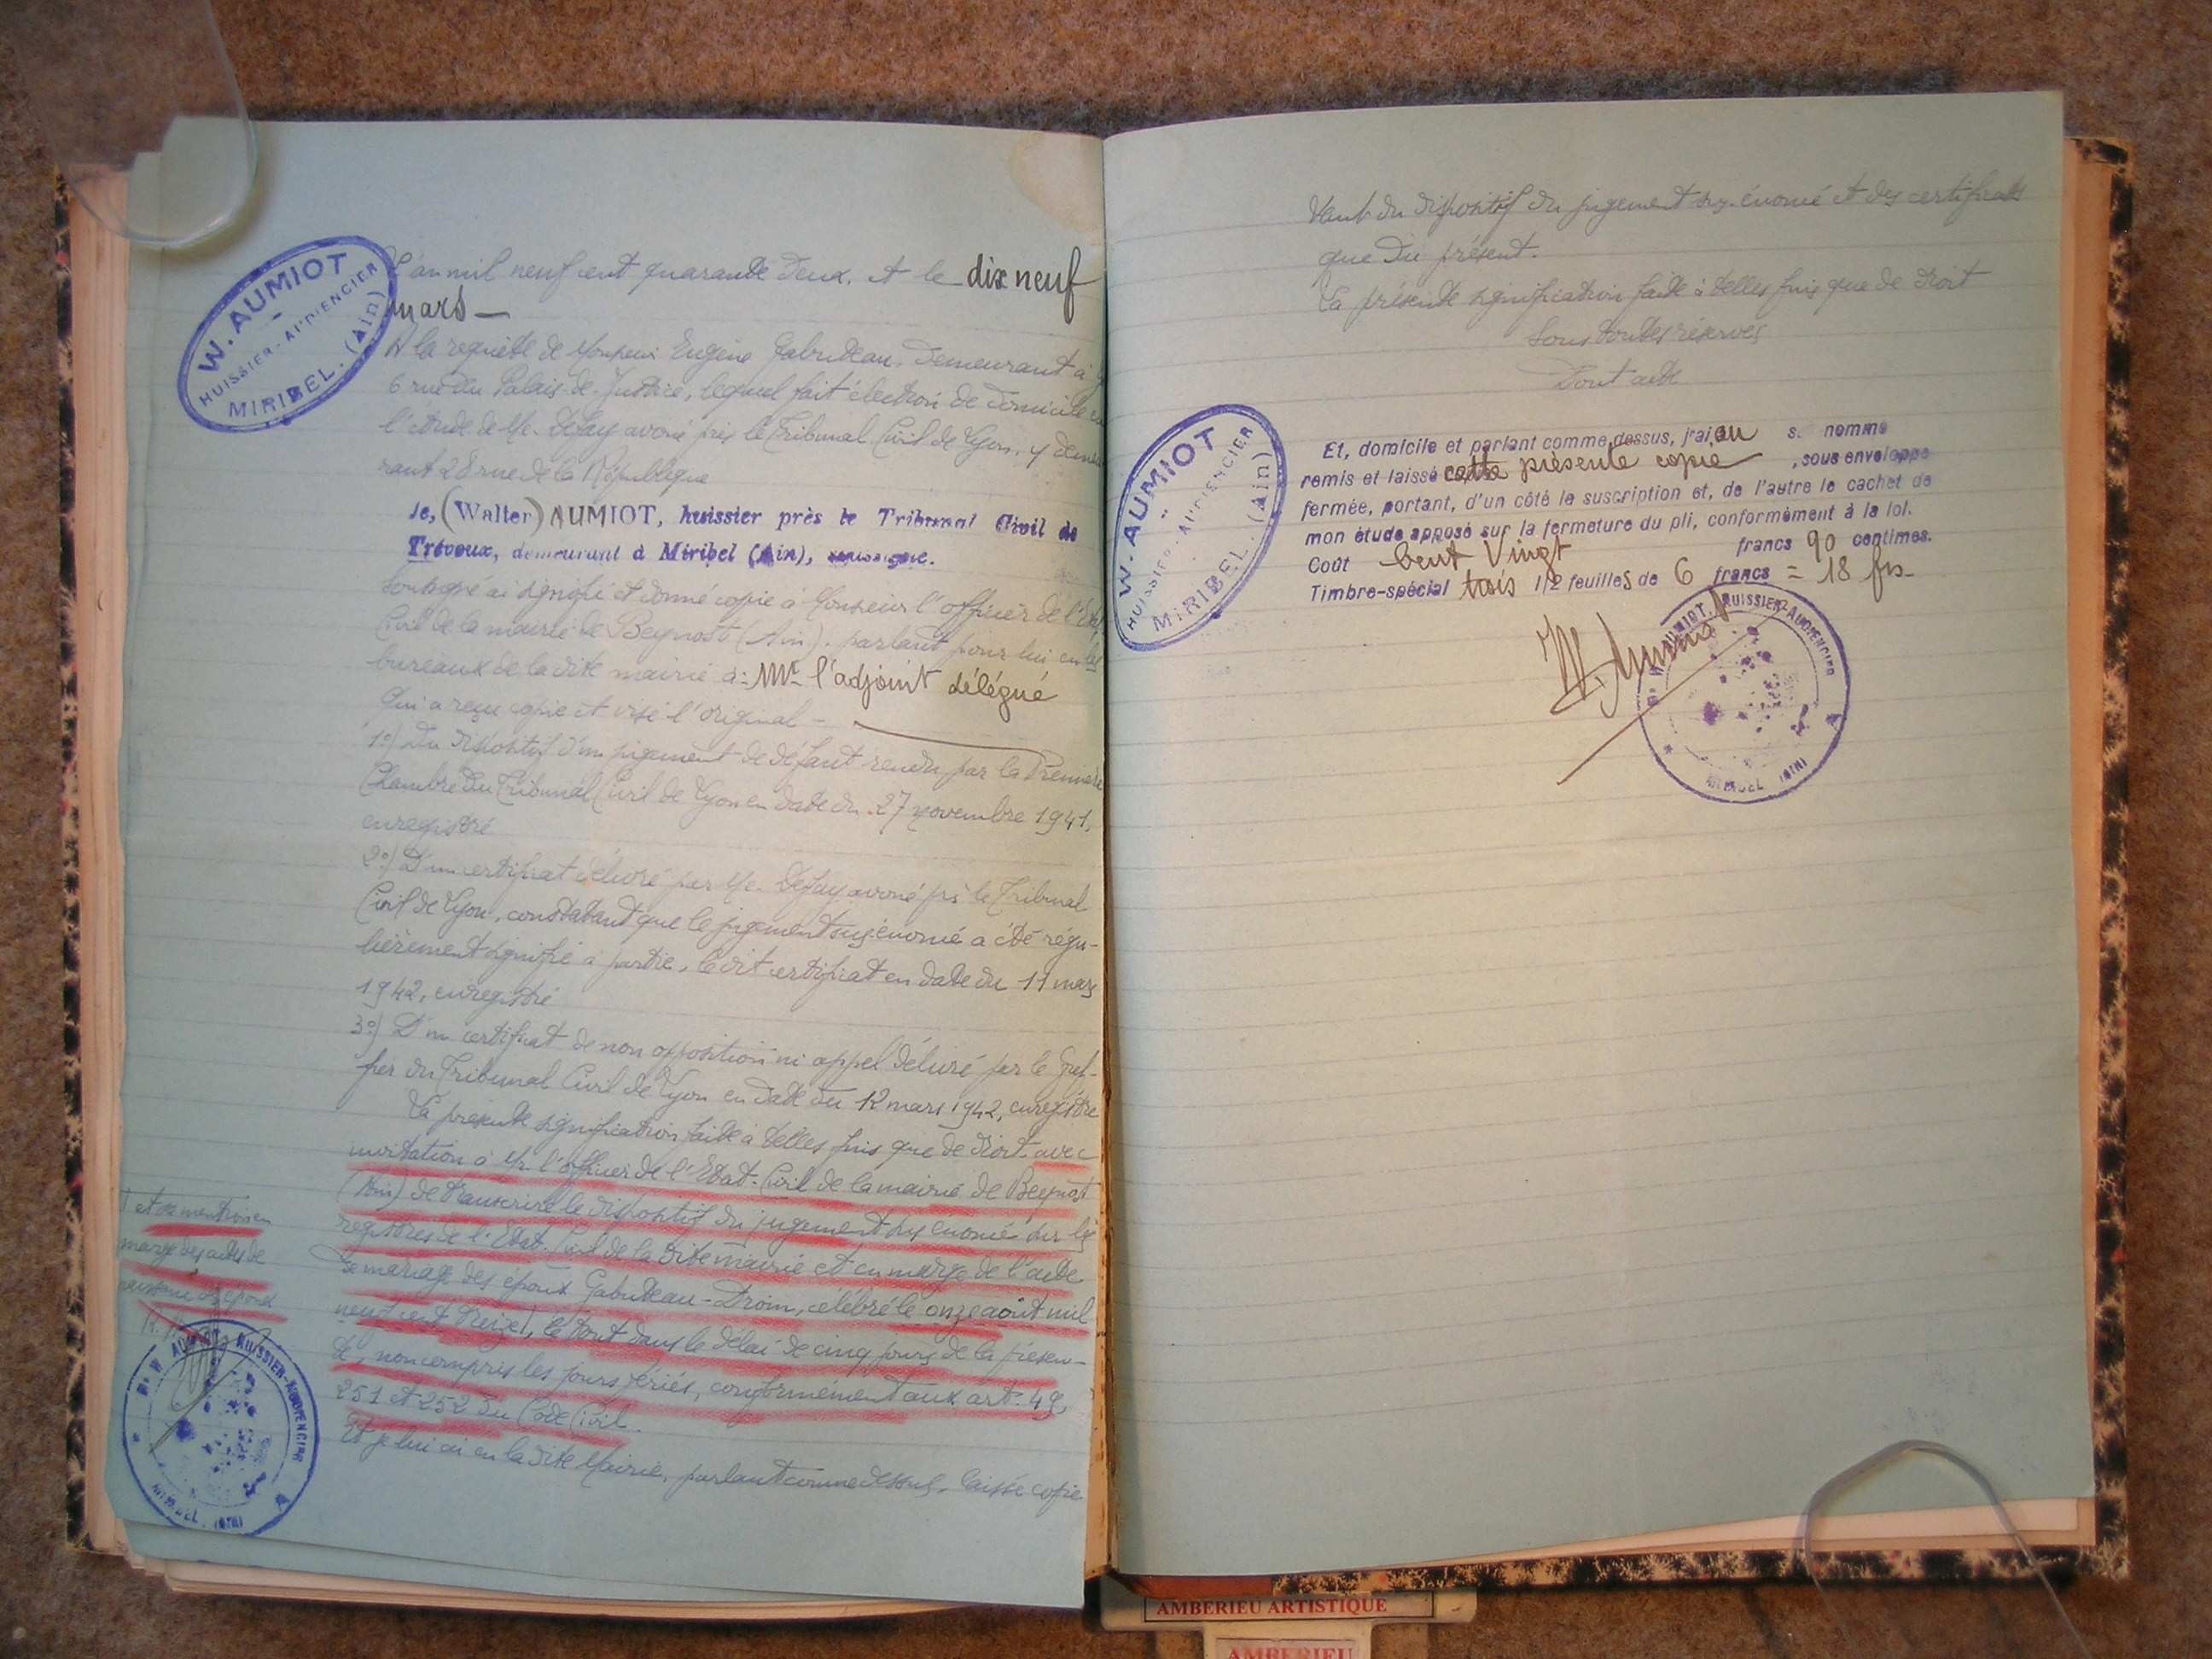 W. AUMIOT
HUISSIER-AUDIENCIER
MIRIBEL. (Ain)
L'an mil neuf cent quarante deux, et le dix neuf
mars —
A la requête de Monsieur Eugène Gabuteau, demeurant à
6 rue du Palais de Justice, lequel fait élection de domicile en
l'étude de Me. Defay avoué près le Tribunal Civil de Lyon, y demeu
rant 28 rue de la République
Je, (Walter) AUMIOT, huissier près le Tribunal Civil de
Trévoux, demeurant à Miribel (Ain), soussigné.
Soussigné ai signifié et donné copie à Monsieur l'officier de l'Etat
Civil de la mairie de Beynost (Ain), parlant pour lui en les
bureaux de la dite mairie à: Mr l'adjoint délégué
Qui a reçu copie et visé l'original —
1°) Du dispositif d'un jugement de défaut rendu par la Première
Chambre du Tribunal Civil de Lyon en date du 27 novembre 1941,
enregistré
2°) D'un certificat délivré par Me. Defay avoué près le Tribunal
Civil de Lyon, constatant que le jugement susénoncé a été régu-
lièrement signifié à partie, le dit certificat en date du 11 mars
1942, enregistré
3°) D'un certificat de non opposition ni appel délivré par le Gref-
fier du Tribunal Civil de Lyon en date du 12 mars 1942, enregistré
La présente signification faite à telles fins que de droit avec
invitation à Mr. l'officier de l'Etat-Civil de la mairie de Beynost
(Ain) de transcrire le dispositif du jugement sus énoncé sur les
registres de l'Etat-Civil de la dite mairie et en marge de l'acte
de mariage des époux Gabuteau-Droin, célébré le onze août mil
neuf cent treize, le tout dans le délai de cinq jours de la présen-
te, non compris les jours fériés, conformément aux art. 49,
251 et 252 du Code Civil.
Et je lui ai en la dite Mairie, parlant comme dessus, laissé copie
et de mention en
marge des actes de
naissance des époux
Me W. AUMIOT, HUISSIER-AUDIENCIER
MIRIBEL. (AIN)
tant du dispositif du jugement sus-énoncé et des certificats
que du présent.
La présente signification faite à telles fins que de droit
Sous toutes réserves
Dont acte
W. AUMIOT
HUISSIER-AUDIENCIER
MIRIBEL. (Ain)
Et, domicile et parlant comme dessus, j'ai, au s. nommé
remis et laissé cette présente copie, sous enveloppe
fermée, portant, d'un côté la suscription et, de l'autre le cachet de
mon étude apposé sur la fermeture du pli, conformément à la loi.
Coût Cent Vingt francs 90 centimes.
Timbre-spécial trois 1/2 feuilles de 6 francs = 18 frs
W. Aumiot
Me W. AUMIOT, HUISSIER-AUDIENCIER
MIRIBEL (AIN)
AMBERIEU ARTISTIQUE
AMBERIEU